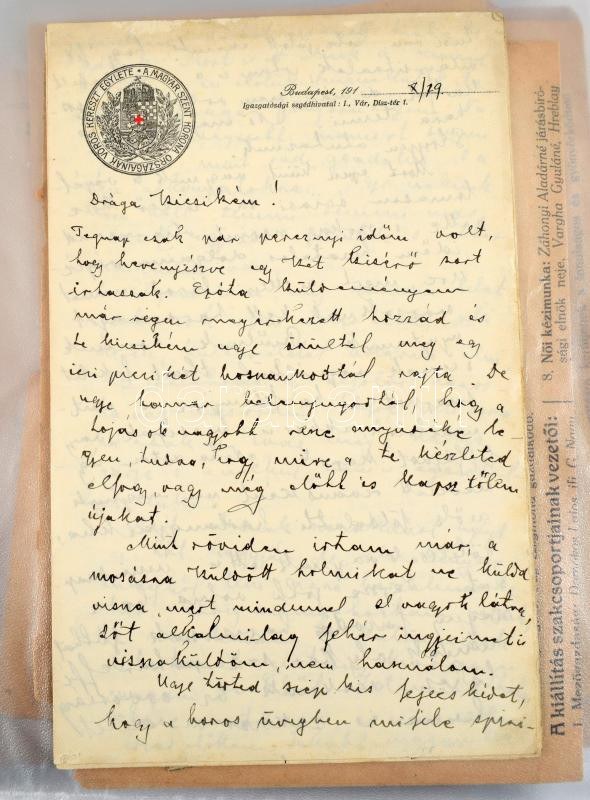 A MAGYAR SZENT KORONA ORSZÁGAINAK VÖRÖS KERESZT EGYLETE •
Budapest, 191 X/19
Igazgatósági segédhivatal: I., Vár, Disz-tér 1.
Drága Kicsikém!
Tegnap csak pár percznyi időm volt,
hogy hevenyészve egy két kisérő sort
irhassak. Azóta küldeményem
már régen megérkezett hozzád és
te kicsikém ugye örültél meg egy
ici picikét rajta. De
ugye hamar, hogy a
tojások nagyobb része anyusé
legyen, tudva, hogy mire a te készleted
elfogy, vagy még előbb is kapsz tőlem
újakat.
Mint röviden irtam már, a
mosásra küldött holmikat ne küldd
vissza, mert mindennel el vagyok látva,
sőt alkalmilag fehér ingjeimet is
visszaküldöm, nem használom.
Ugye törted szép kis fejecskédet,
hogy a boros üvegben miféle
8. Női kézimunka: Záhonyi Aladárné járásbiró-
sági elnök neje, Vargha Gyuláné, Hreblay
A kiállítás szakcsoportjainak vezetői: